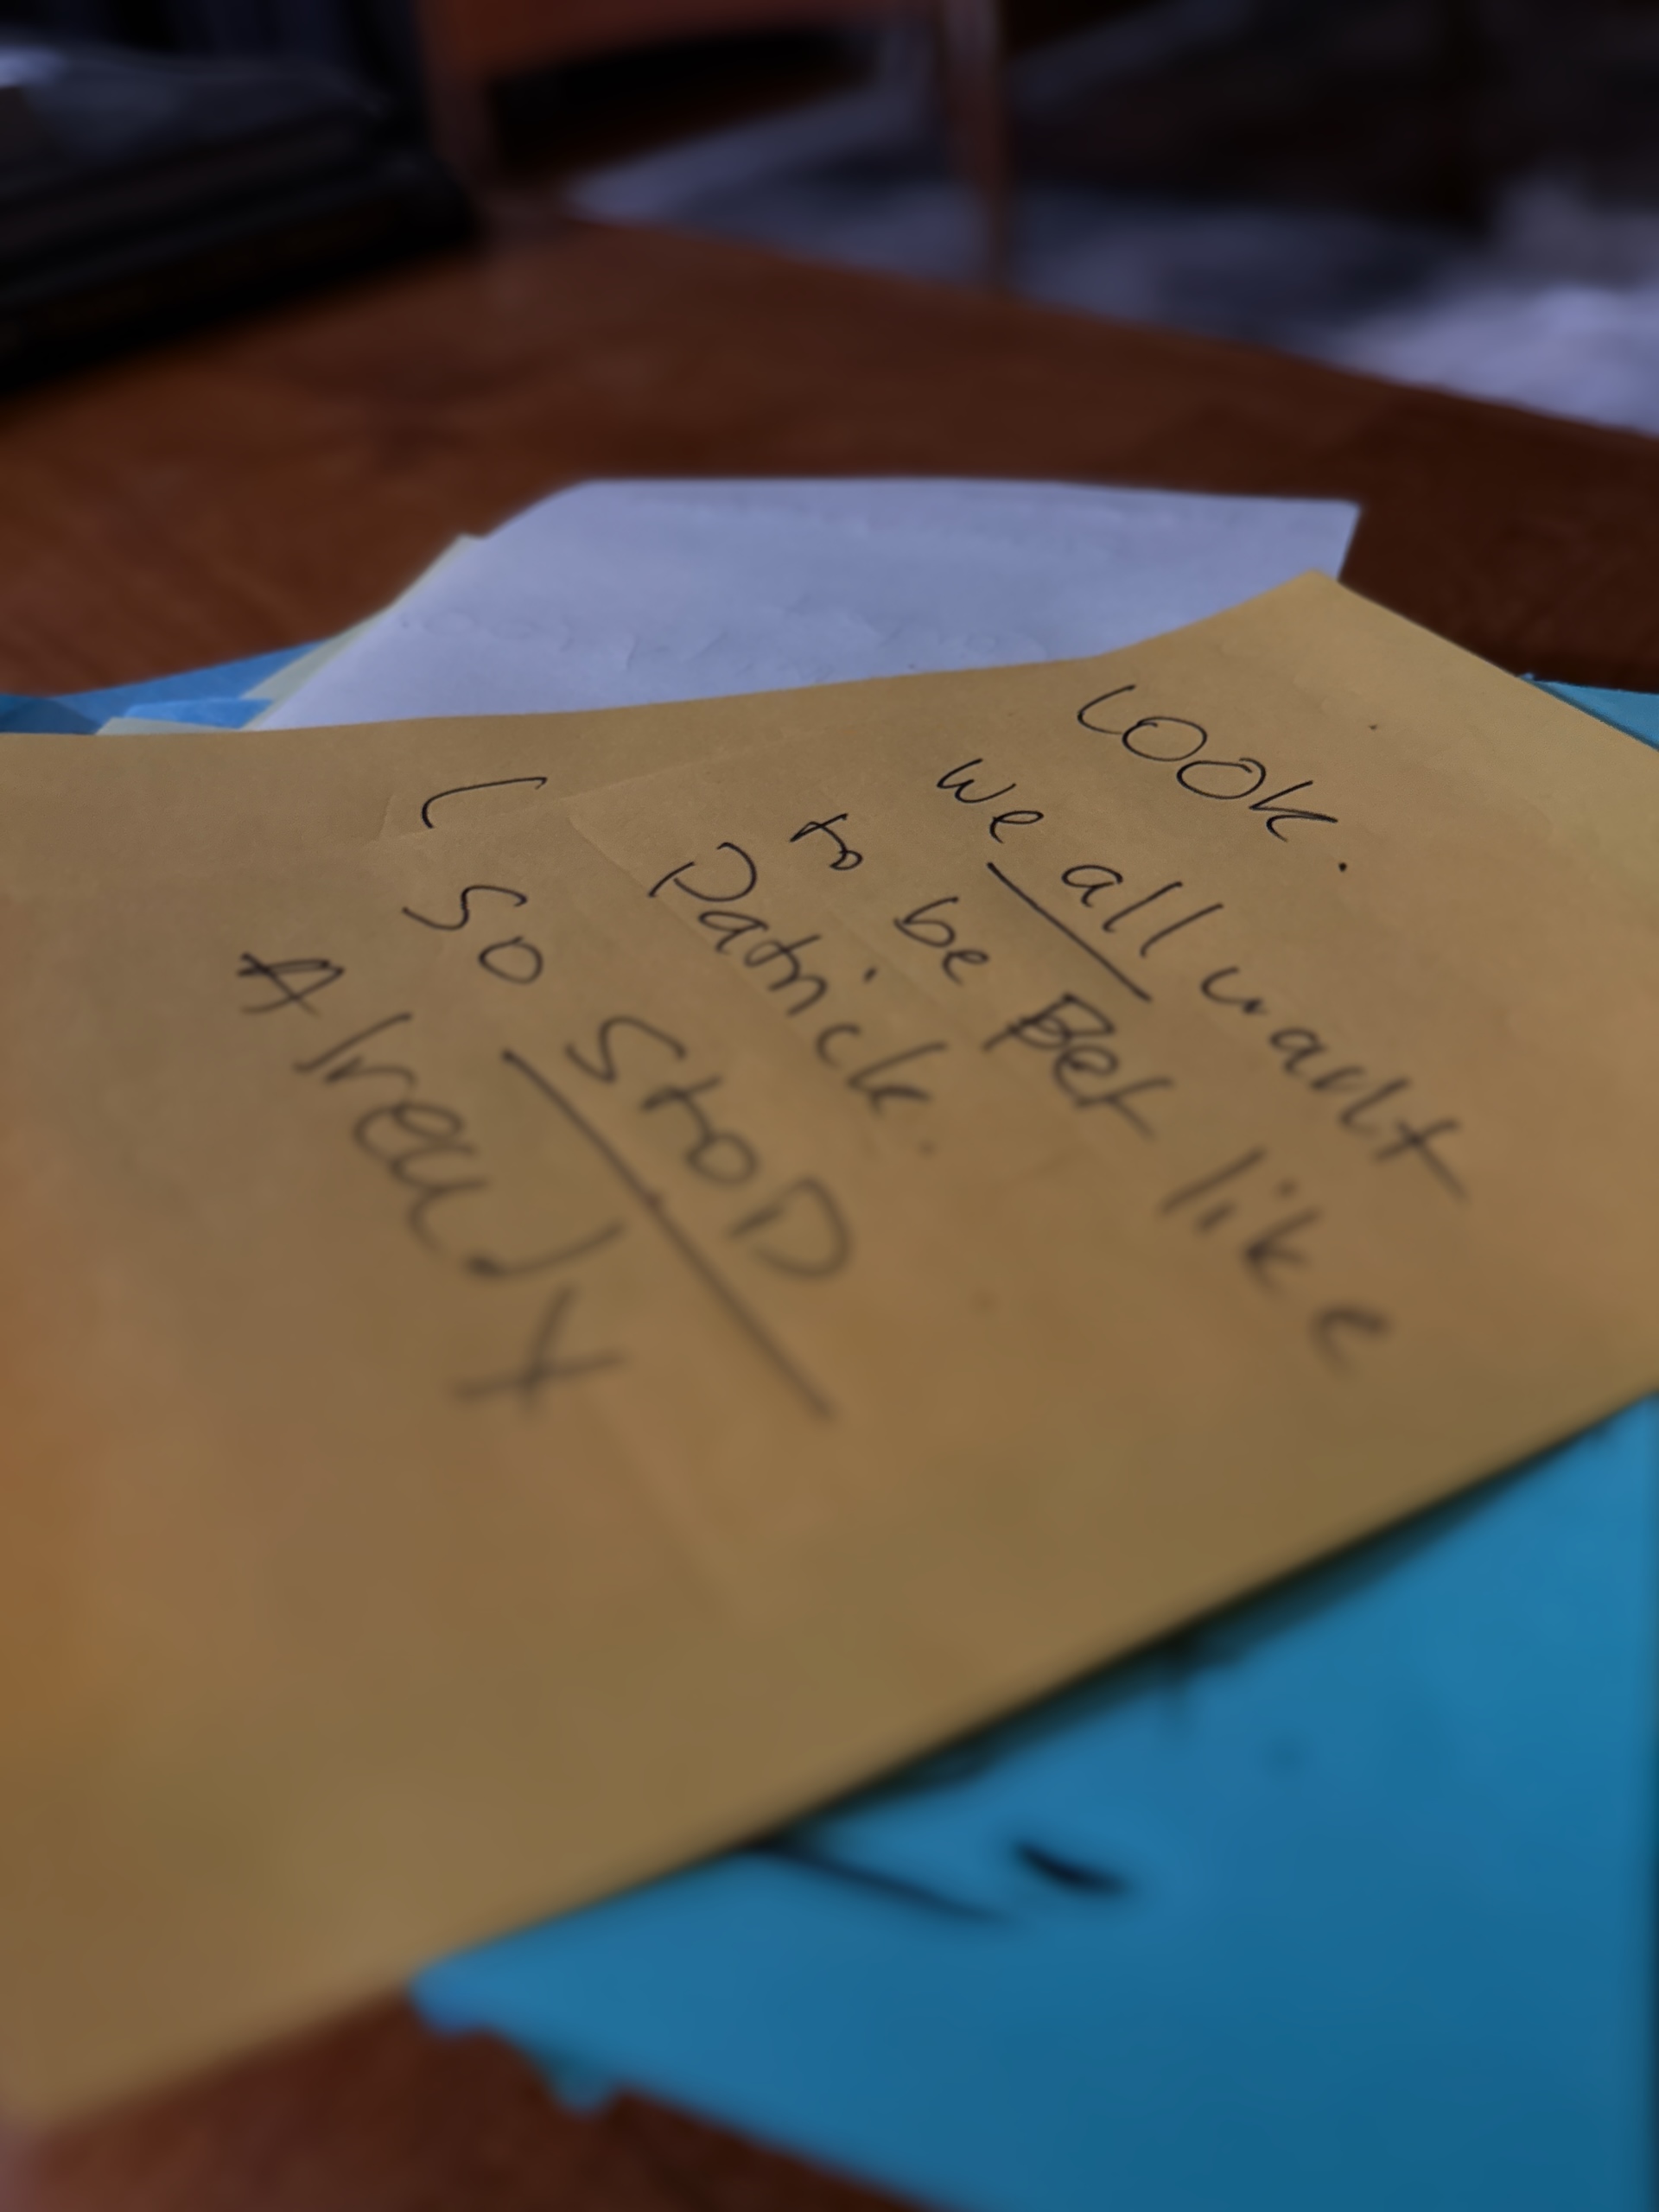 LOOK.
We all want
to be Bet like
Patrick.
( So StoP
Alreadt